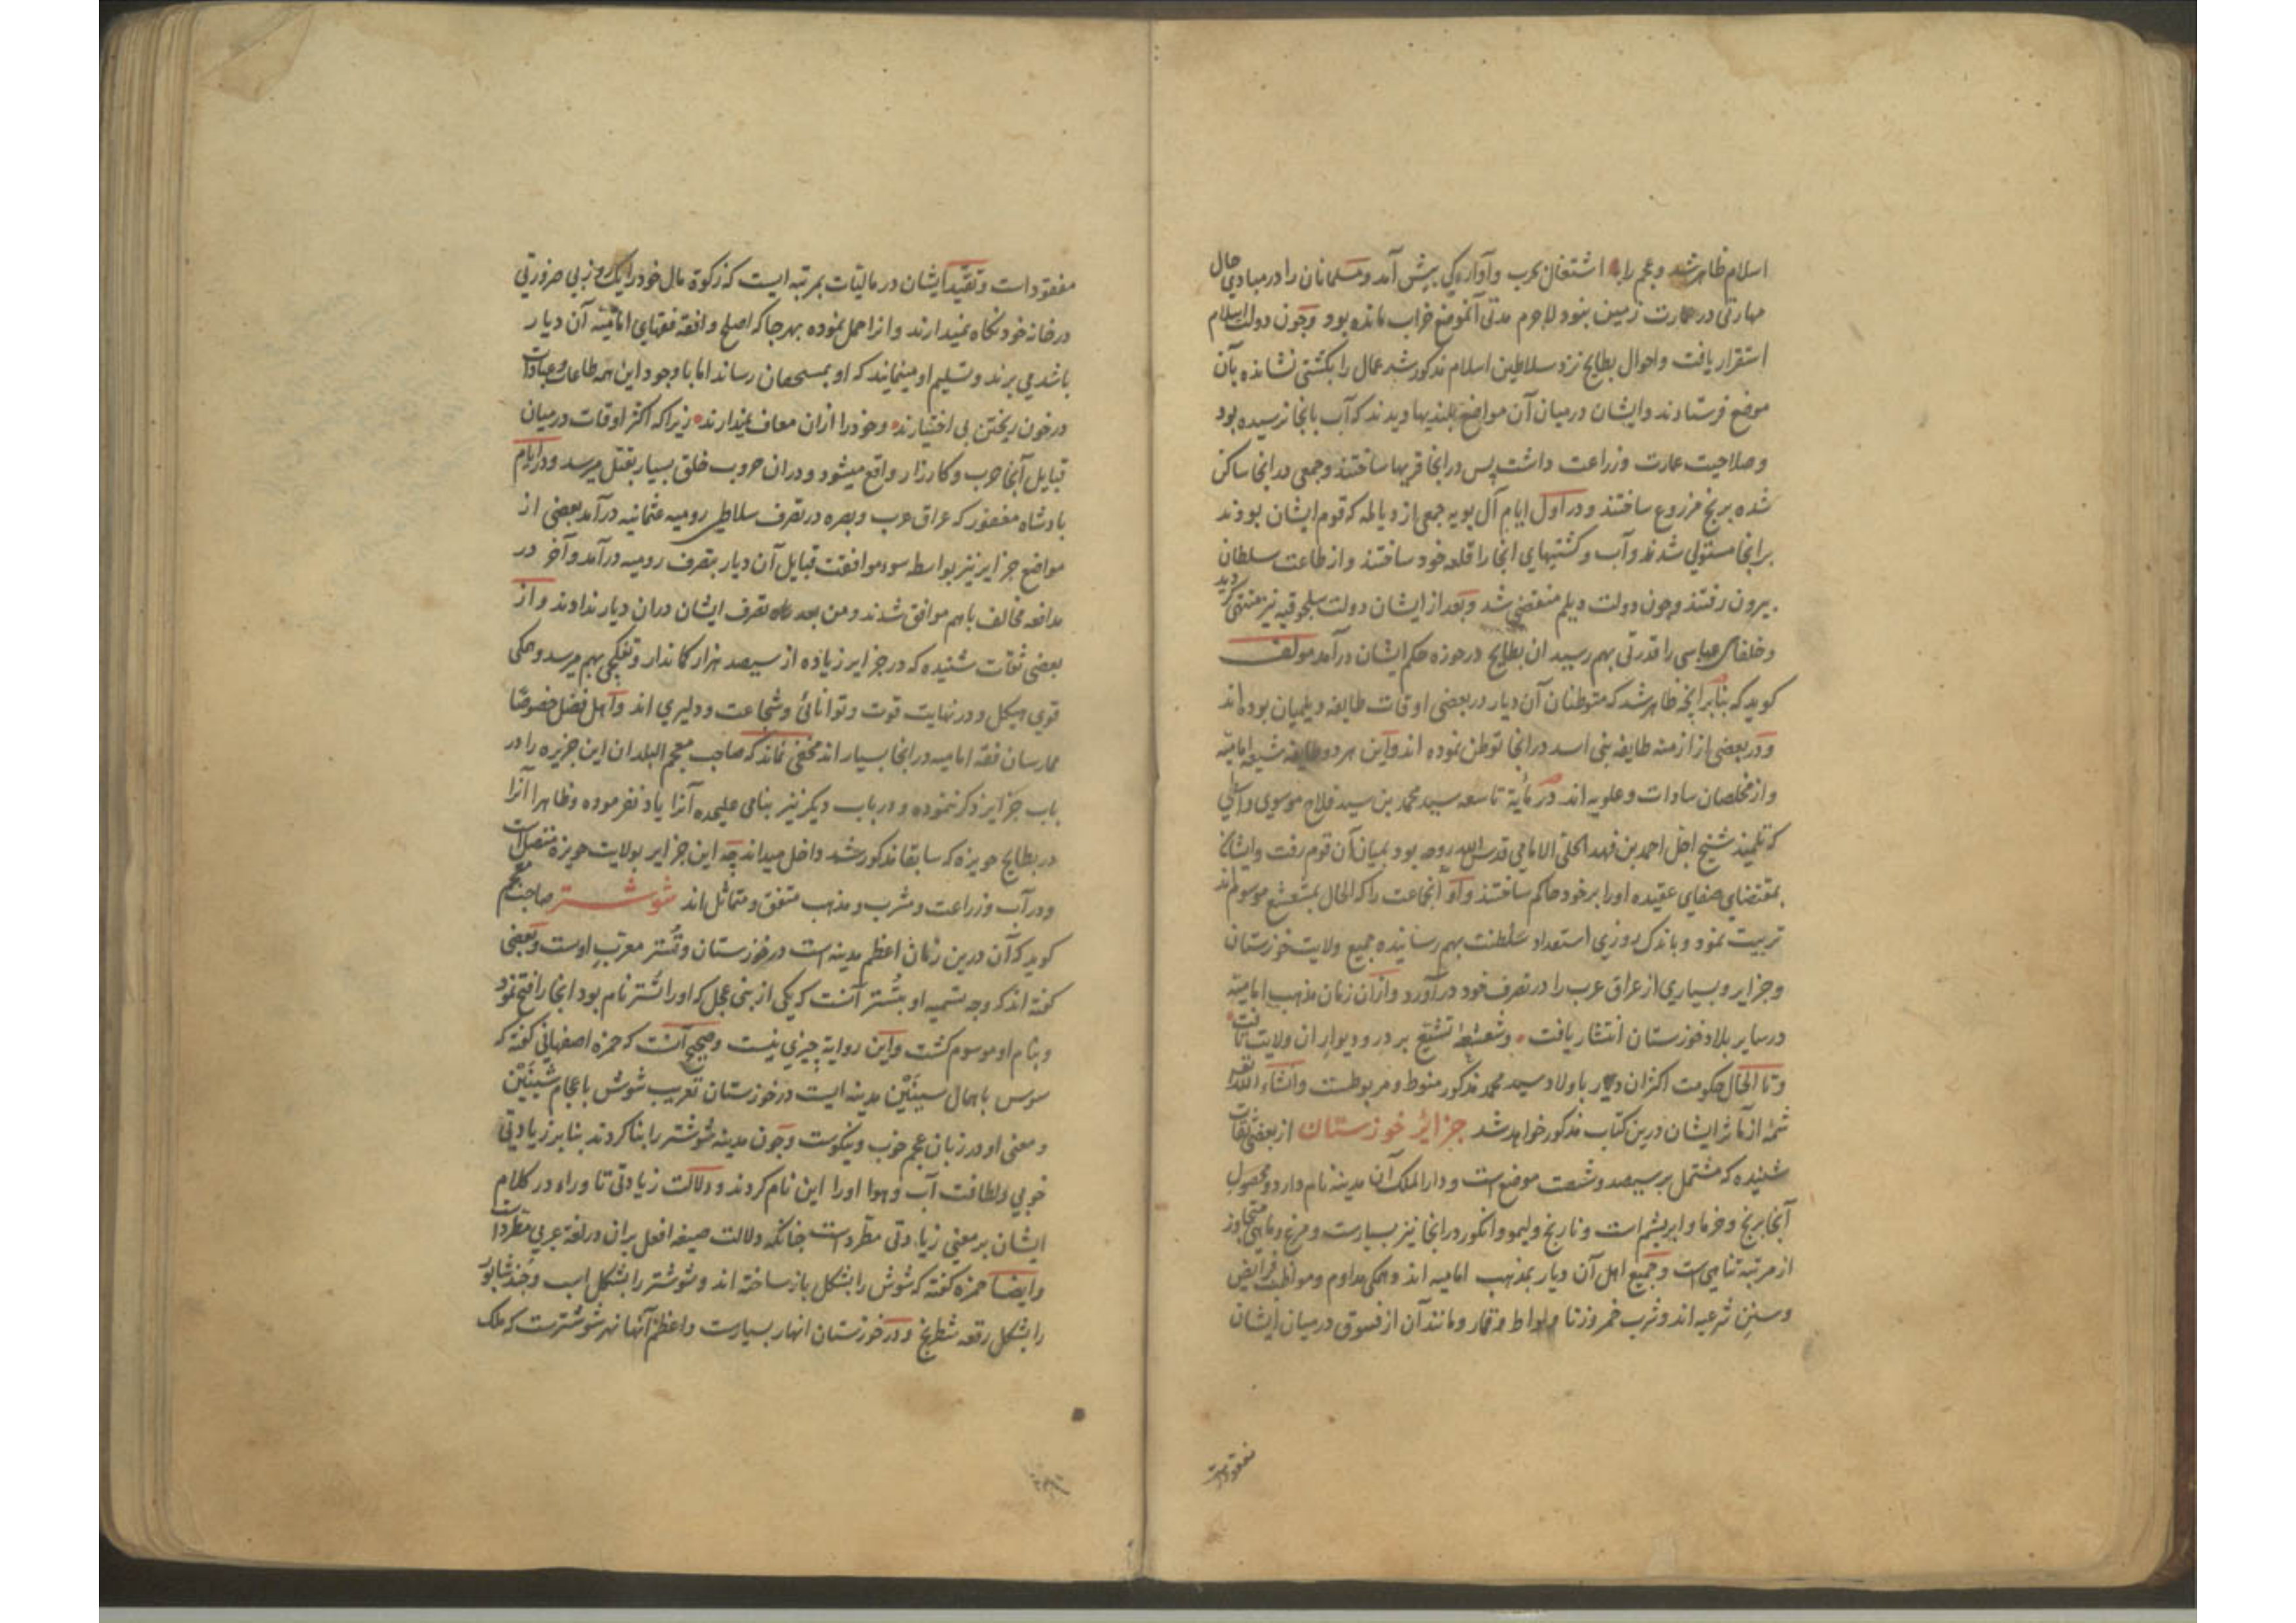 اسلام ظاهر شد و عجم را اشتغال بحرب و آوارگی پیش آمد و مسلمانان را در مبادی حال
مهارتی در عمارت زمین نبود لاجرم مدتی آنموضع خراب مانده بود و چون دولت اسلام
استقرار یافت و احوال بطایح نزد سلاطین اسلام مذکور شد عمال را بکشتی نشانده بآن
موضع فرستادند و ایشان درمیان آن مواضع بلندیها دیدند که آب بانجا نرسیده بود
و صلاحیت عمارت و زراعت داشت پس در انجا قریها ساختند و جمعی در انجا ساکن
شده برنج مزروع ساختند و در اول ایام آل بویه جمعی از دیالمه که قوم ایشان بودند
بر انجا مستولی شدند و آب و کشتیهای انجا را قلعه خود ساختند و از طاعت سلطان
بیرون رفتند و چون دولت دیلم منقضی شد و بعد از ایشان دولت سلجوقیه نیز منتهی گردید
و خلفای عباسی را قدرتی بهم رسید ان بطایح در حوزه حکم ایشان درآمد مولف
کوید که بنابر انچه ظاهر شد که متوطنان آن دیار در بعضی اوقات طایفه دیلمیان بوده اند
و در بعضی از ازمنه طایفه بنی اسد در انجا توطن نموده اند و این هر دو طایفه شیعه امامیه
و از مخلصان سادات و علویه اند در مأیة تاسعه سید محمد بن سید فلاح موسوی واسطی
که تلمیذ شیخ اجل احمد بن فهد الحلی الامامی قدس الله روحه بود بمیان آن قوم رفت و ایشان
بمقتضای صفای عقیده او را بر خود حاکم ساختند و او آنجماعت را که الحال بمشعشع موسوم اند
تربیت نمود و باندک روزی استعداد سلطنت بهم رسانیده جمیع ولایت خوزستان
و جزایر و بسیاری از عراق عرب را در تصرف خود درآورد و ازان زمان مذهب امامیه
در سایر بلاد خوزستان انتشار یافت و شعشعه تشیع بر در و دیوار ان ولایت تافت
و تا الحال حکومت اکثر ان دیار باولاد سید محمد مذکور منوط و مربوطست و انشاء الله
شمه از مآثر ایشان درین کتاب مذکور خواهد شد جزائر خوزستان از بعضی ثقات
شنیده که مشتمل بر سیصد و شصت موضع است و دار الملک آن مدینه نام دارد و محصول
آنجا برنج و خرما و ابریشم است و نارنج و لیمو و انگور در انجا نیز بسیارست و مرغ و ماهی متجاوز
از مرتبه تناهی است و جمیع اهل آن دیار بمذهب امامیه اند و همگی مداوم و مواظب فرایض
و سنن شرعیه اند و شرب خمر و زنا و لواط و قمار و مانند آن از فسوق درمیان ایشان
مفقودست
مفقود است و تقید ایشان در مالیات بمرتبه ایست که زکوة مال خود را یک روز بی ضرورتی
در خانه خود نگاه نمیدارند و انرا حمل نموده بهر جا که اصلح و افقه فقهای امامیه آن دیار
باشد می برند و تسلیم او مینمایند که او بمستحقان رساند اما با وجود این همه طاعات و عبادات
در خون ریختن بی اختیارند و خود را ازان معاف نمیدارند زیرا که اکثر اوقات درمیان
قبایل آنجا حرب و کارزار واقع میشود و دران حروب خلقی بسیار بقتل میرسد و در ایام
پادشاه مغفور که عراق عرب و بصره در تصرف سلاطین رومیه عثمانیه درآمد بعضی از
مواضع جزایر نیز بواسطه سوء موافقت قبایل آن دیار بتصرف رومیه درآمد و آخر در
مدافعه مخالف باهم موافق شدند و من بعد راه تصرف ایشان دران دیار ندادند و از
بعضی ثقات شنیده که در جزایر زیاده از سیصد هزار کماندار و تفنکچی بهم میرسد و همگی
قوی هیکل و در نهایت قوت و توانائی و شجاعت و دلیری اند و اهل فضل خصوصًا
ممارسان فقه امامیه در انجا بسیار اند مخفی نماند که صاحب معجم البلدان این جزیره را در
باب جزایر ذکر ننموده و در باب دیکر نیز بنامی علیحده آنرا یاد نفرموده و ظاهرا آنرا
در بطایح حویزه که سابقا مذکور شد داخل میداند چه این جزایر بولایت حویزه متصل است
و در آب و زراعت و مشرب و مذهب متفق و متماثل اند شوشتر صاحب معجم
کوید که آن درین زمان اعظم مدینه است در خوزستان و تُستر معرّب اوست و بعضی
کفته اند که وجه تسمیه او بتُستر آنست که یکی از بنی عجل که او را تُستر نام بود انجا را فتح نمود
و بنام او موسوم کشت و این روایة چیزی نیست و صحیح آنست که حمزه اصفهانی کفته که
سوس باهمال سینَیْن مدینه ایست در خوزستان تعریب شوش باعجام شینَیْن
و معنی او در زبان عجم خوب و نیکوست و چون مدینه شوشتر را بنا کردند بنابر زیادتی
خوبی و لطافت آب و هوا او را این نام کردند و دلالت زیادتی تا و راء در کلام
ایشان بر معنی زیادتی مطّرد است چنانکه دلالت صیغه افعل بران در لغة عربی مطّرد است
و ایضا حمزه کفته که شوش را بشکل باز ساخته اند و شوشتر را بشکل اسب و جند شابور
را بشکل رقعه شطرنج و در خوزستان انهار بسیارست و اعظم آنها نهر شوشترست که ملک